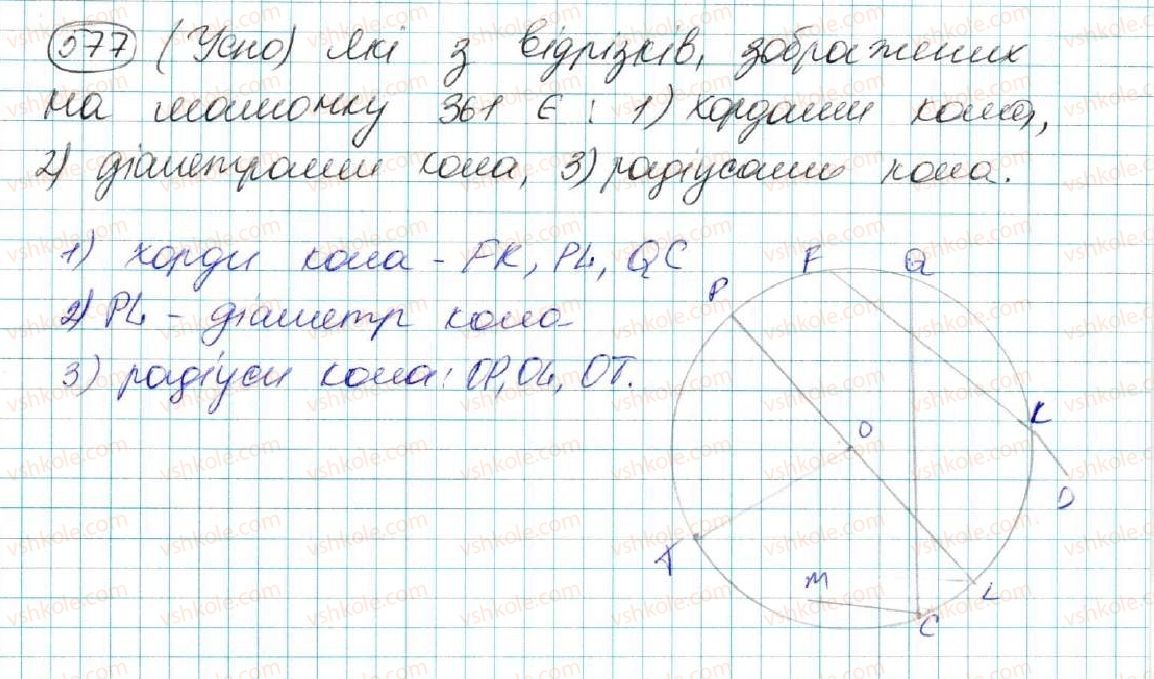 577 (Усно) Які з відрізків, зображених
на малюнку 361 є : 1) хордами кола,
2) діаметрами кола, 3) радіусами кола.
1) хорди кола - FK, PL, QC
2) PL - діаметр кола
3) радіуси кола: OP, OL, OT.
F Q
P
K
O
D
T
M
L
C
vshkole.com